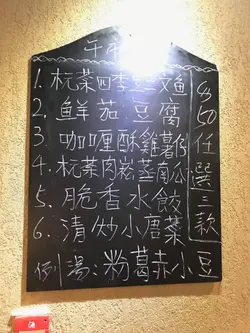 午市
1. 杬菜四季豆三文魚
2. 鮮茄豆腐
3. 咖喱酥雞薯仔
4. 杬菜肉崧蒸南瓜
5. 脆香水餃
6. 清炒小唐菜
例湯：粉葛赤小豆
$50任選三款